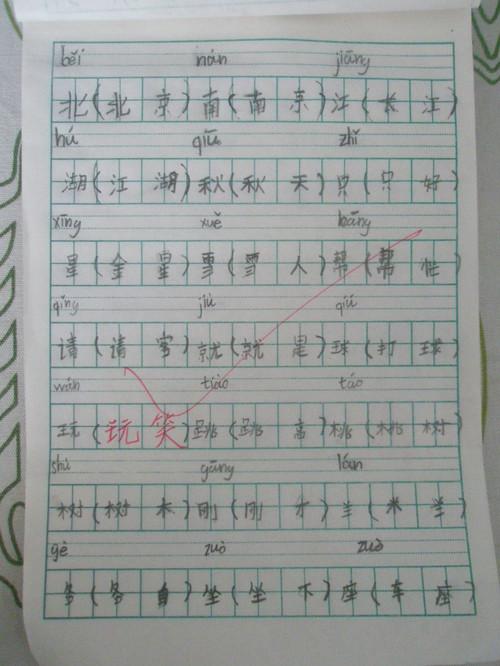 běi nán jiāng
北(北京)南(南京)江(长江)
hú qiū zhǐ
湖(江湖)秋(秋天)只(只好)
xīng xuě bāng
星(金星)雪(雪人)帮(帮忙)
qǐng jiù qiú
请(请客)就(就是)球(打球)
wán tiào táo
玩(玩笑)跳(跳高)桃(桃树)
shù gāng lán
树(树木)刚(刚才)兰(米兰)
gè zuò zuò
各(各自)坐(坐下)座(车座)